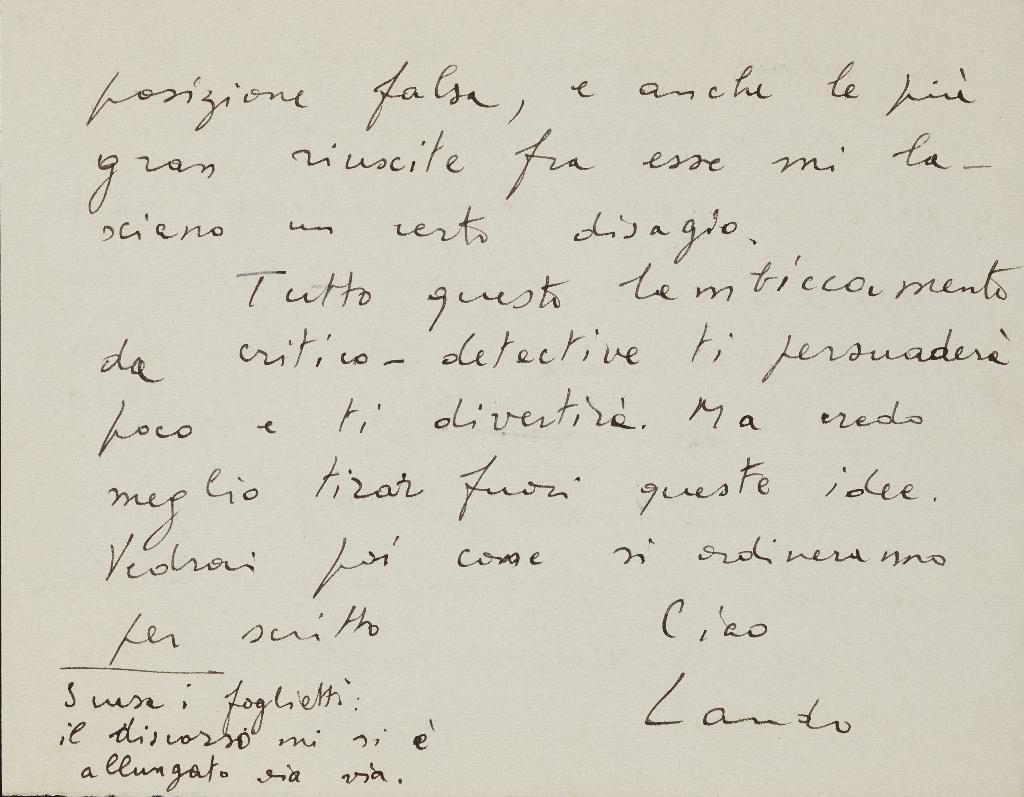 posizione falsa, e anche le più
gran riuscite fra esse mi la-
sciano un certo disagio.
Tutto questo lambiccamento
da critico-detective ti persuaderà
poco e ti divertirà. Ma credo
meglio tirar fuori queste idee.
Vedrai poi come si ordineranno
per scritto
Ciao
Lando
Scusa i foglietti:
il discorso mi si è
allungato via via.